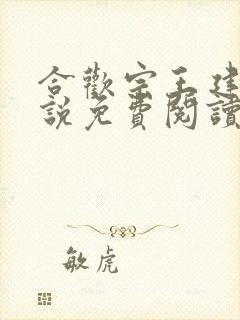 合歡宗王建
說免費閱讀
敏虎